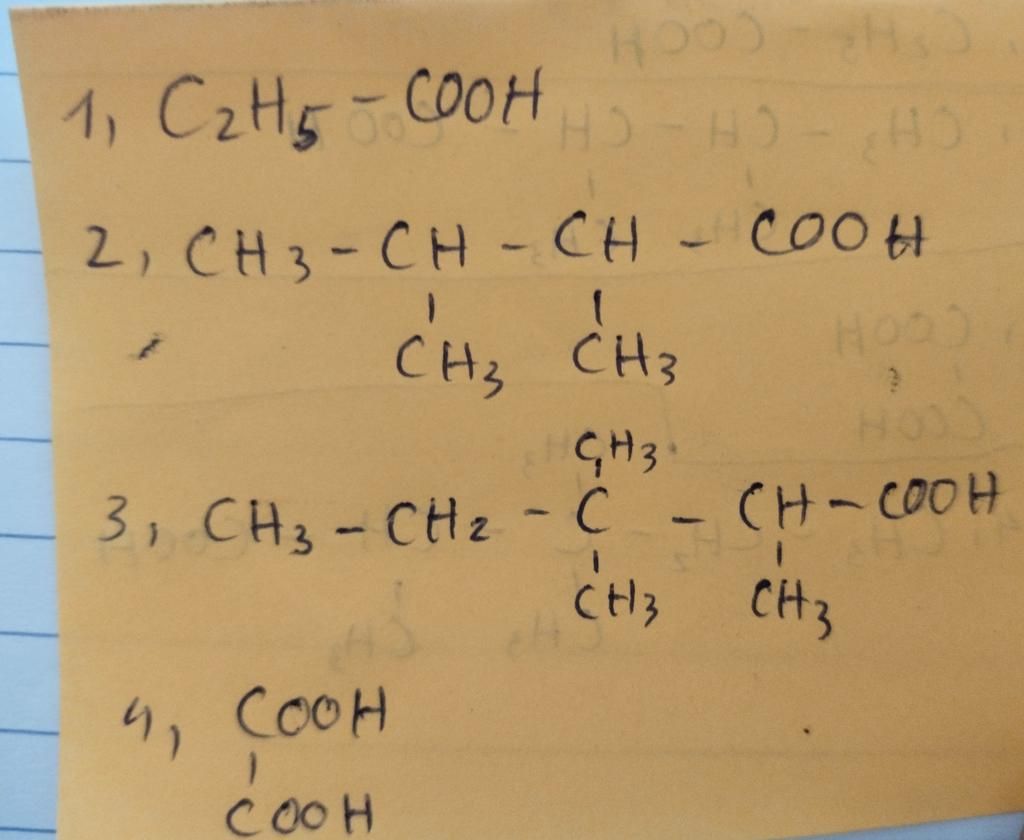 1, C2H5-COOH
2, CH3-CH-CH-COOH
CH3 CH3
CH3
3, CH3-CH2-C-CH-COOH
CH3 CH3
4, COOH
COOH